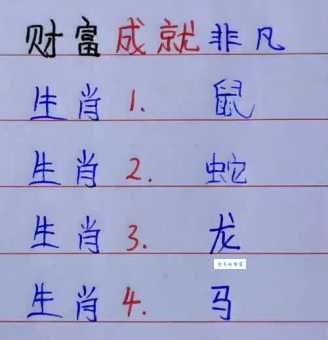 财富成就非凡
生肖 1. 鼠
生肖 2. 蛇
生肖 3. 龙
生肖 4. 马